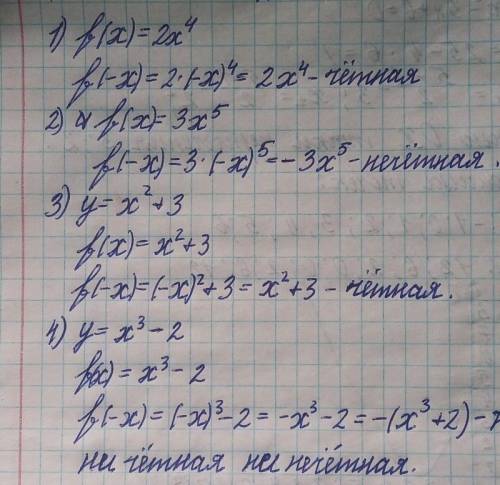 1) f(x) = 2x⁴
f(-x) = 2·(-x)⁴ = 2x⁴ - чётная
2) f(x) = 3x⁵
f(-x) = 3·(-x)⁵ = -3x⁵ - нечётная.
3) y = x² + 3
f(x) = x² + 3
f(-x) = (-x)² + 3 = x² + 3 - чётная.
4) y = x³ - 2
f(x) = x³ - 2
f(-x) = (-x)³ - 2 = -x³ - 2 = -(x³ + 2) -
ни чётная ни нечётная.